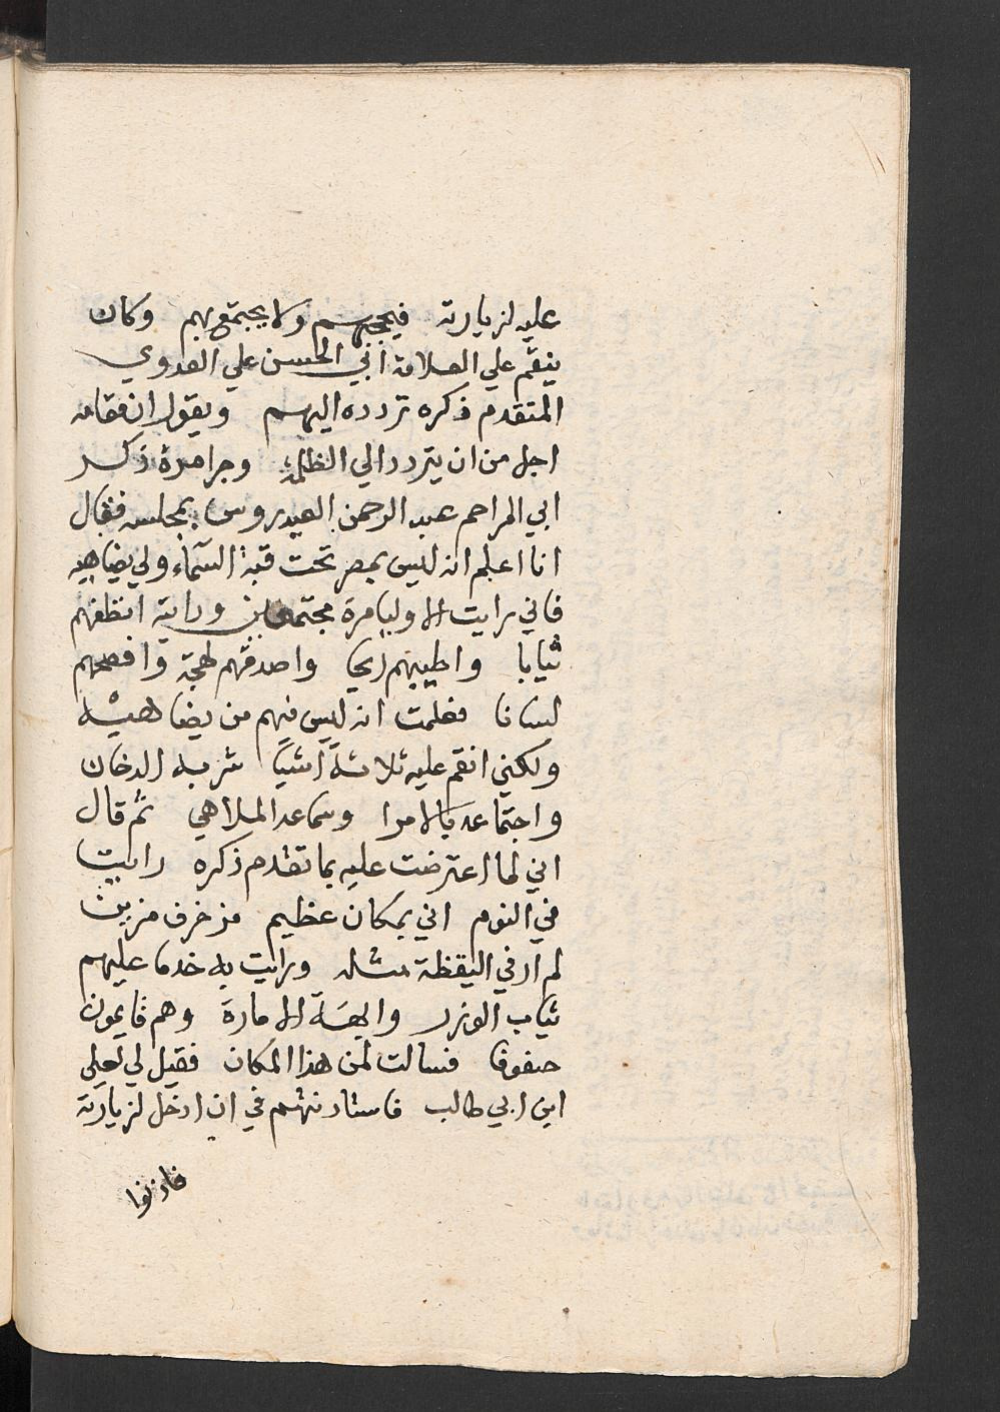 عليه لزيارته فيحجبهم ولا يجتمع بهم وكان
ينقم علي العلامة ابي الحسن علي العدوي
المتقدم ذكره تردده اليهم ويقول ان مقامه
اجل من ان يتردد الي الظلمة وجرا مرة ذكر
ابي المراحم عبد الرحمن العيدروس بمجلسه فقال
انا اعلم انه ليس بمصر تحت قبة السمآء ولي يضاهيه
فاني رايت الاوليا مرة مجتمعين ورايته انظفهم
ثيابا واطيبهم ريحا واصدقهم لهجة وافصحهم
لسانا فعلمت انه ليس فيهم من يضاهيه
ولكني انقم عليه ثلاثة اشيا شربه الدخان
واجتماعه بالامرا وسماعه الملاهي ثم قال
اني لما اعترضت عليه بما تقدم ذكره رايت
في النوم اني بمكان عظيم مزخرف مزين
لم ار في اليقظة مثله ورايت به خدما عليهم
ثياب الوزر وابهة الامارة وهم قايمون
صفوفا فسالت لمن هذا المكان فقيل لي لعلي
ابن ابي طالب فاستاذنتهم في ان ادخل لزيارته
فاذنوا